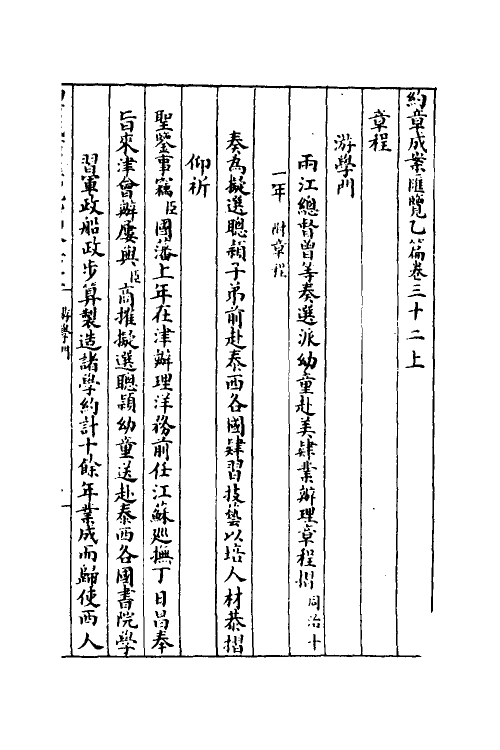 約章成案匯覽乙篇卷三十二上
章程
游學門
兩江總督曾等奏選派幼童赴美肄業辦理章程摺同治十
一年 附章程
奏為擬選聰穎子弟前赴泰西各國肄習技藝以培人材恭摺
仰祈
聖鑒事竊臣國藩上年在津辦理洋務前任江蘇廵撫丁日昌奉
旨來津會辦屢與臣商搉擬選聰穎幼童送赴泰西各國書院學
習軍政船政步算製造諸學約計十餘年業成而歸使西人
游學門